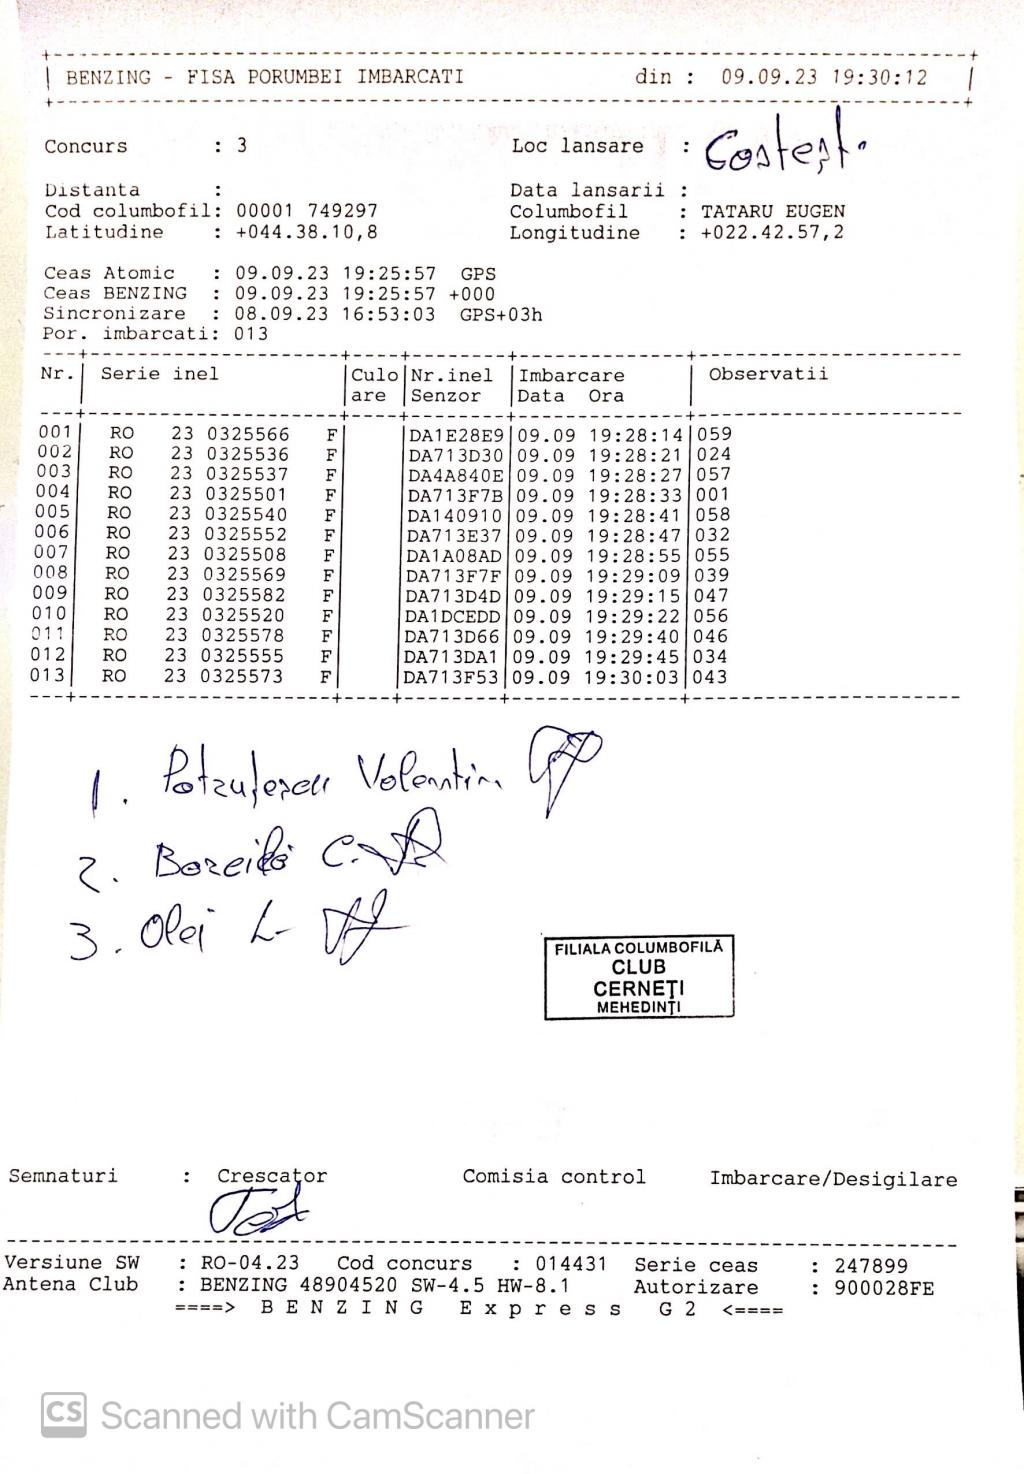 BENZING - FISA PORUMBEI IMBARCATI din : 09.09.23 19:30:12
Concurs : 3 Loc lansare : Costești
Distanta : Data lansarii :
Cod columbofil: 00001 749297 Columbofil : TATARU EUGEN
Latitudine : +044.38.10,8 Longitudine : +022.42.57,2
Ceas Atomic : 09.09.23 19:25:57 GPS
Ceas BENZING : 09.09.23 19:25:57 +000
Sincronizare : 08.09.23 16:53:03 GPS+03h
Por. imbarcati: 013
Nr. Serie inel Culo Nr.inel Imbarcare Observatii
are Senzor Data Ora
001 RO 23 0325566 F DA1E28E9 09.09 19:28:14 059
002 RO 23 0325536 F DA713D30 09.09 19:28:21 024
003 RO 23 0325537 F DA4A840E 09.09 19:28:27 057
004 RO 23 0325501 F DA713F7B 09.09 19:28:33 001
005 RO 23 0325540 F DA140910 09.09 19:28:41 058
006 RO 23 0325552 F DA713E37 09.09 19:28:47 032
007 RO 23 0325508 F DA1A08AD 09.09 19:28:55 055
008 RO 23 0325569 F DA713F7F 09.09 19:29:09 039
009 RO 23 0325582 F DA713D4D 09.09 19:29:15 047
010 RO 23 0325520 F DA1DCEDD 09.09 19:29:22 056
011 RO 23 0325578 F DA713D66 09.09 19:29:40 046
012 RO 23 0325555 F DA713DA1 09.09 19:29:45 034
013 RO 23 0325573 F DA713F53 09.09 19:30:03 043
1. Valentin
2. C.
3. Olei L-
FILIALA COLUMBOFILĂ
CLUB
CERNEȚI
MEHEDINȚI
Semnaturi : Crescator Comisia control Imbarcare/Desigilare
Versiune SW : RO-04.23 Cod concurs : 014431 Serie ceas : 247899
Antena Club : BENZING 48904520 SW-4.5 HW-8.1 Autorizare : 900028FE
====> B E N Z I N G E x p r e s s G 2 <====
CS Scanned with CamScanner